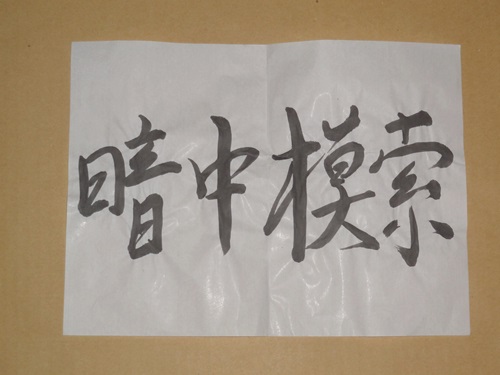 暗中模索